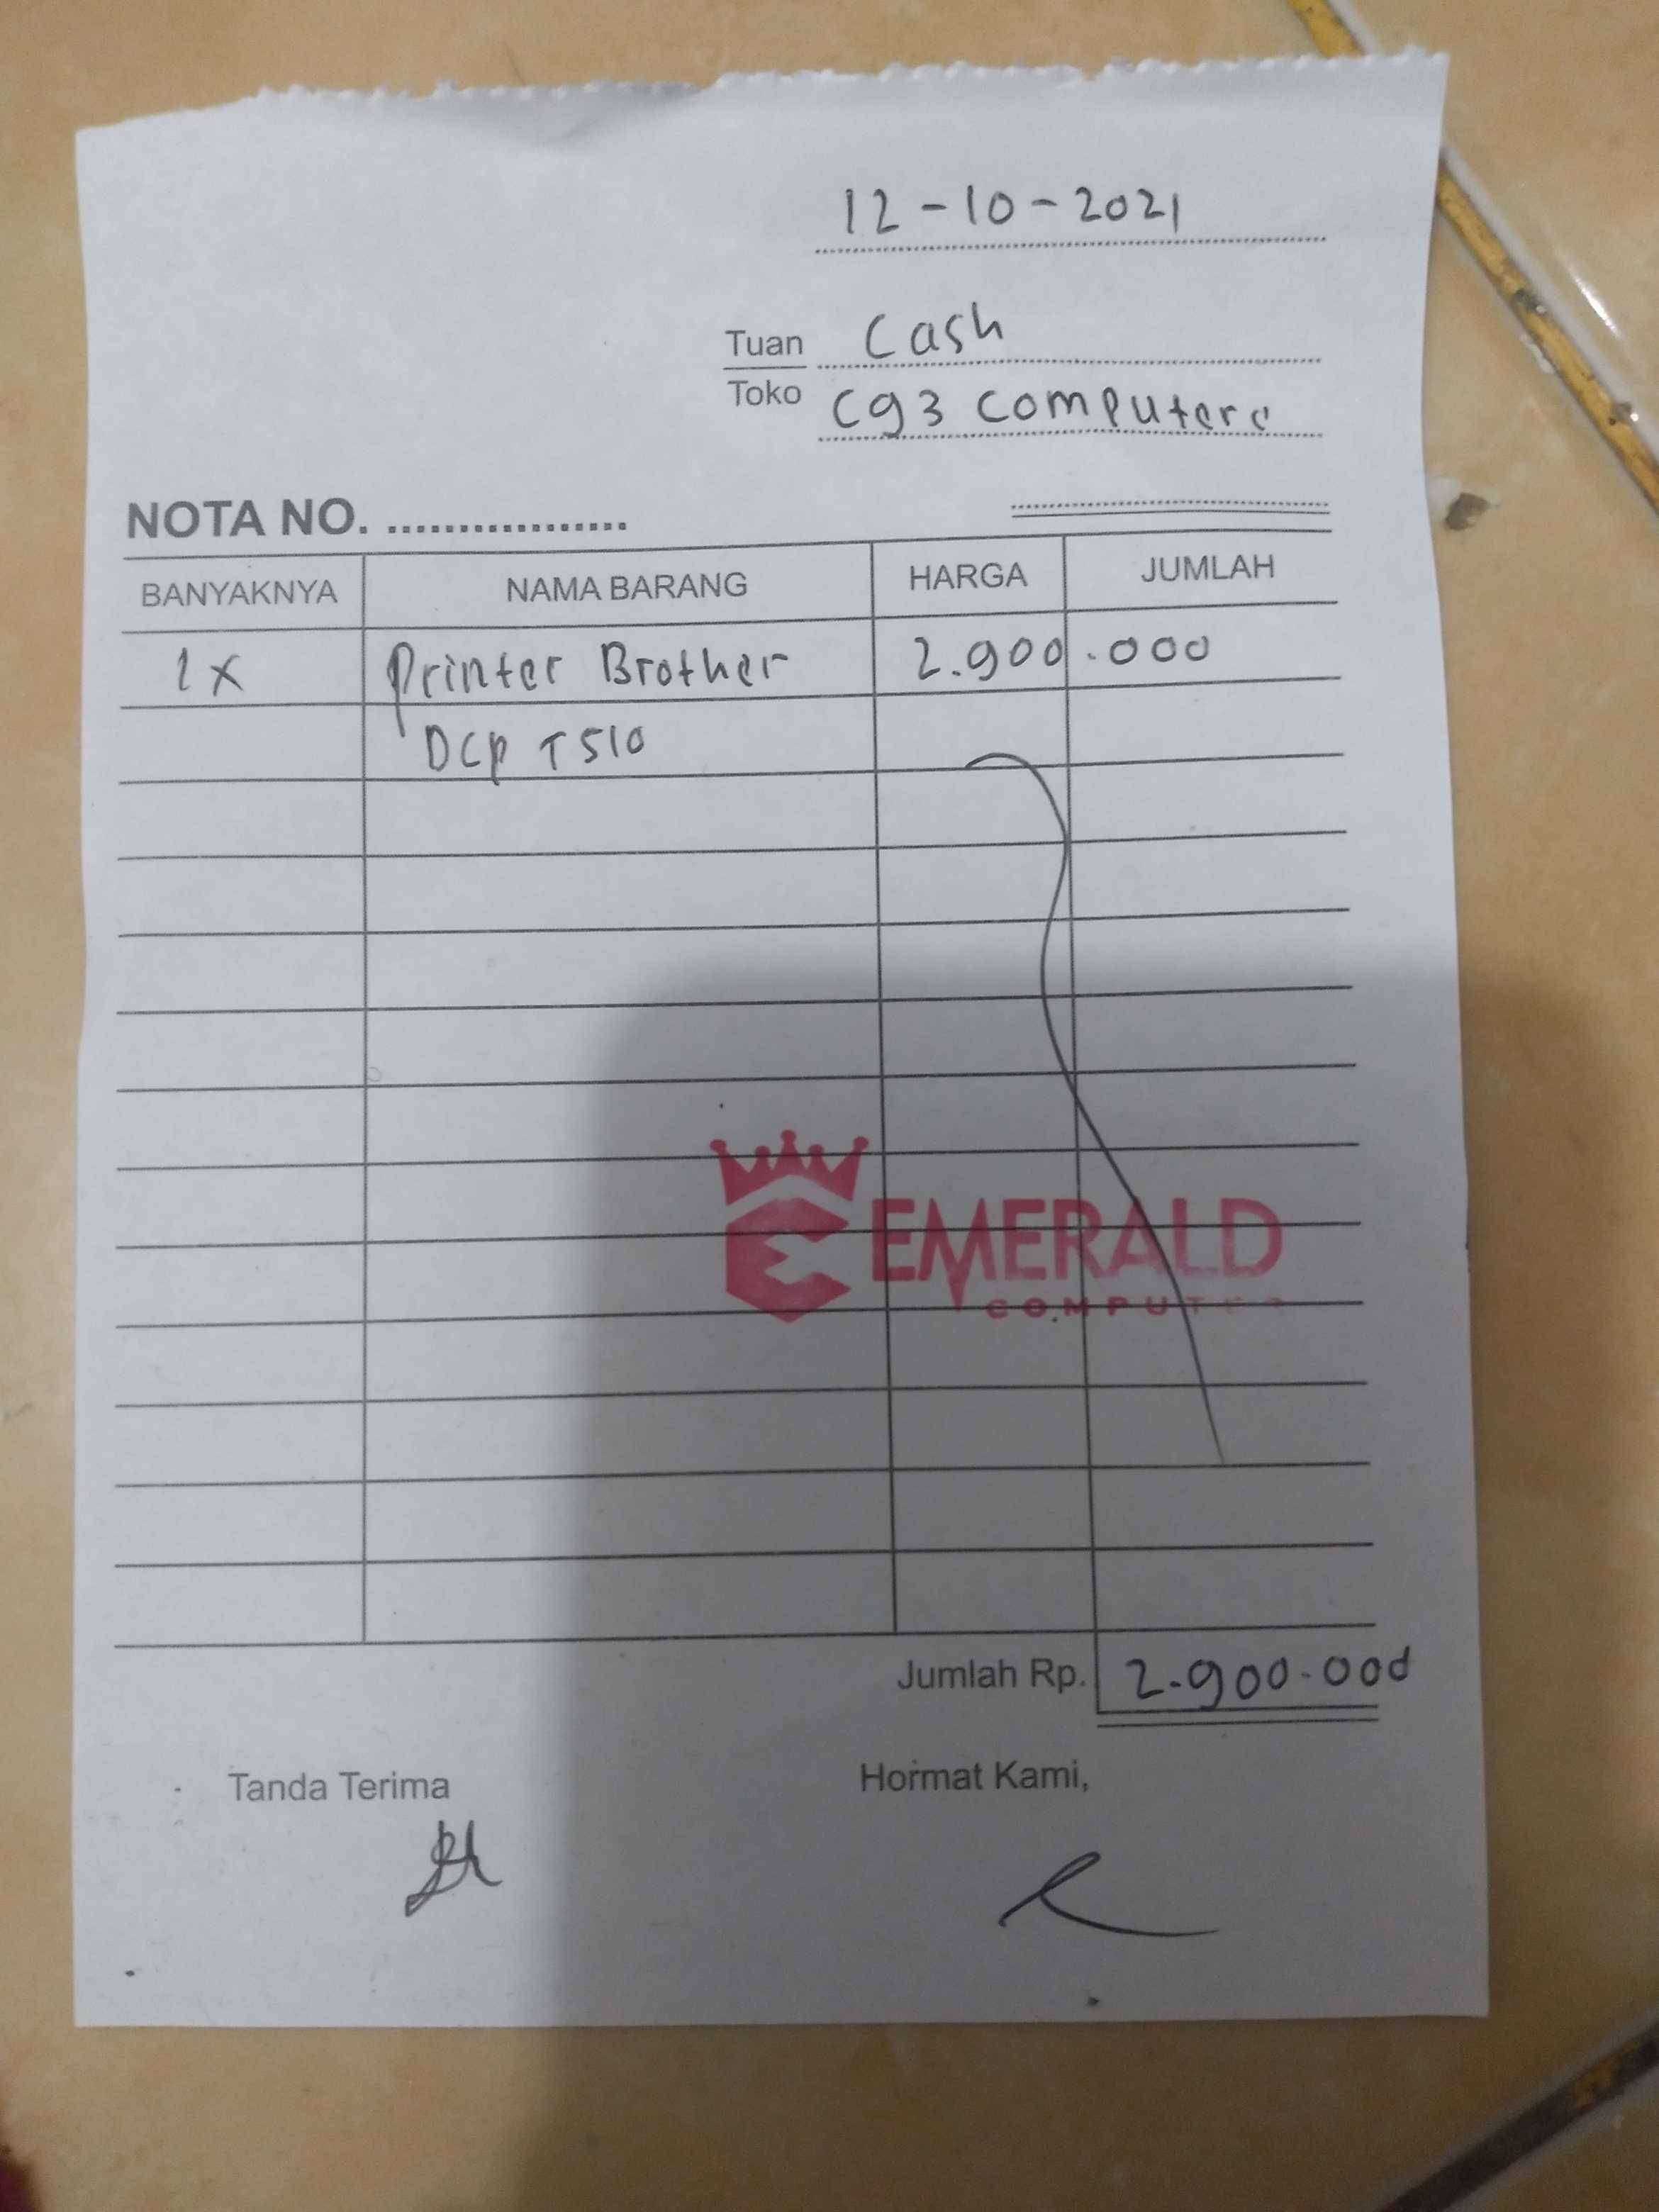 12-10-2021
Tuan Cash
Toko cg3 computere
NOTA NO. ..................
BANYAKNYA NAMA BARANG HARGA JUMLAH
1x Printer Brother 2.900.000
DCP T510
EMERALD
COMPUTER
Jumlah Rp. 2.900.000
Tanda Terima Hormat Kami,